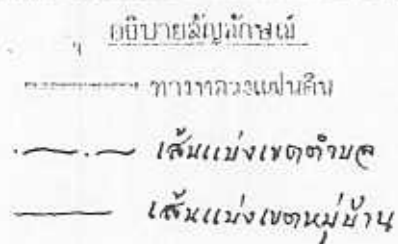 อธิบายสัญลักษณ์
ทางหลวงแผ่นดิน
เส้นแบ่งเขตตำบล
เส้นแบ่งเขตหมู่บ้าน